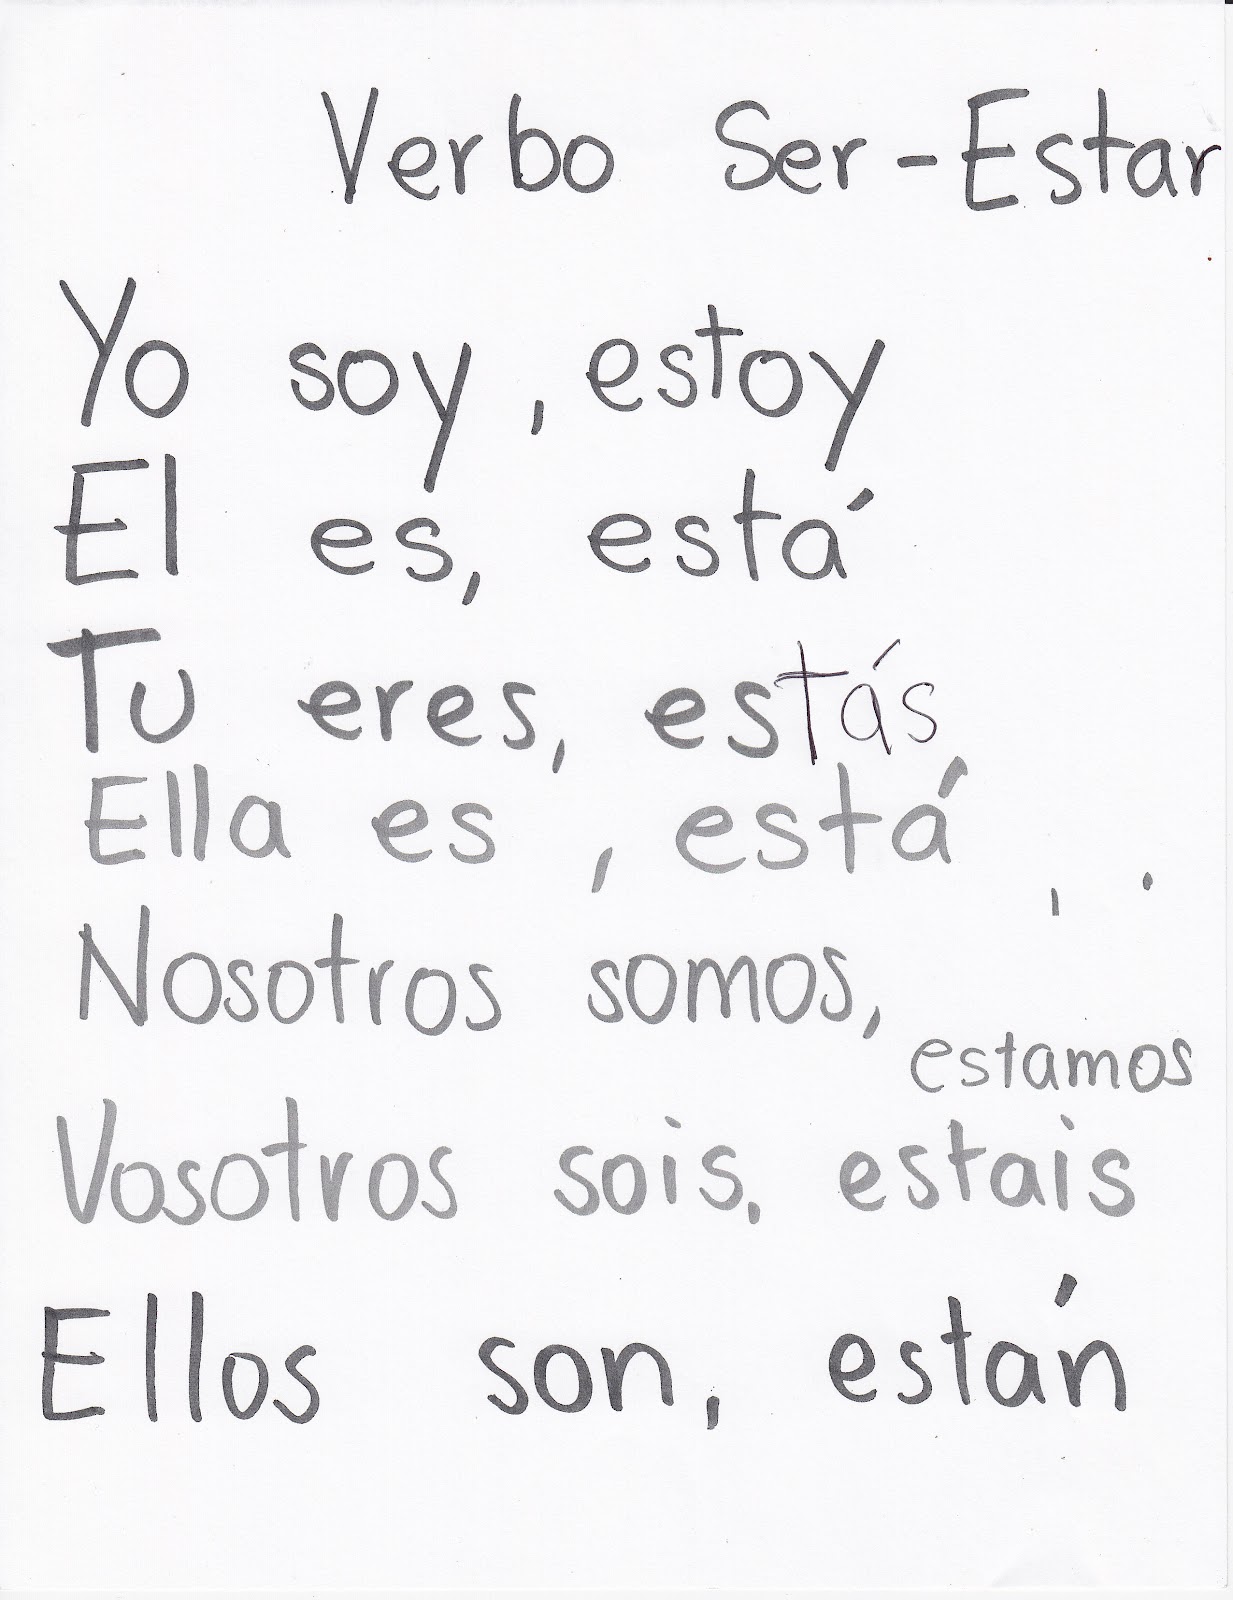 Verbo Ser-Estar
Yo soy, estoy
El es, está
Tu eres, estás
Ella es, está
Nosotros somos,
estamos
Vosotros sois, estais
Ellos son, están